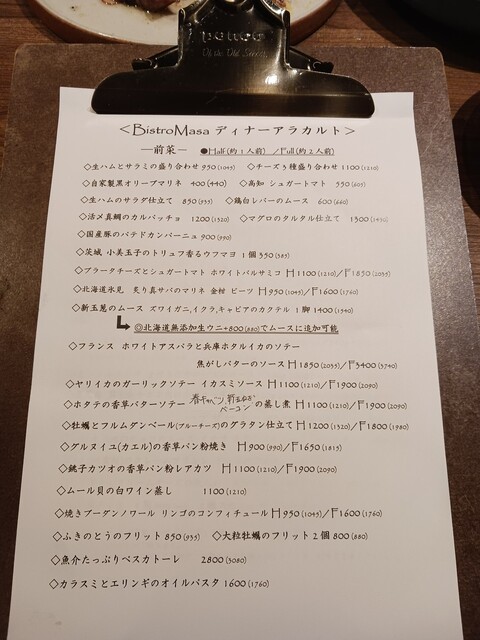 ＜BistroMasa ディナーアラカルト＞
―前菜― ●Half(約1人前) ／Full(約2人前)
◇生ハムとサラミの盛り合わせ 950(1045) ◇チーズ3種盛り合わせ 1100(1210)
◇自家製黒オリーブマリネ 400(440) ◇高知 シュガートマト 550(605)
◇生ハムのサラダ仕立て 850(935) ◇鶏白レバーのムース 600(660)
◇活〆真鯛のカルパッチョ 1200(1320) ◇マグロのタルタル仕立て 1300(1430)
◇国産豚のパテドカンパーニュ 900(990)
◇茨城 小美玉子のトリュフ香るウフマヨ 1個 350(385)
◇ブラータチーズとシュガートマト ホワイトバルサミコ H1100(1210)／F1850(2035)
◇北海道氷見 炙り真サバのマリネ 金柑 ビーツ H950(1045)／F1600(1760)
◇新玉葱のムース ズワイガニ,イクラ,キャビアのカクテル 1脚 1400(1540)
◎北海道無添加生ウニ+800(880)でムースに追加可能
◇フランス ホワイトアスパラと兵庫ホタルイカのソテー
焦がしバターのソース H1850(2035)／F3400(3740)
◇ヤリイカのガーリックソテー イカスミソース H1100(1210)／F1900(2090)
◇ホタテの香草バターソテー 春キャベツ、新玉ねぎ ベーコン の蒸し煮 H1100(1210)／F1900(2090)
◇牡蠣とフルムダンベール(ブルーチーズ)のグラタン仕立て H1200(1320)／F1800(1980)
◇グルヌイユ(カエル)の香草パン粉焼き H900(990)／F1650(1815)
◇銚子カツオの香草パン粉レアカツ H1100(1210)／F1900(2090)
◇ムール貝の白ワイン蒸し 1100(1210)
◇焼きブーダンノワール リンゴのコンフィチュール H950(1045)／F1600(1760)
◇ふきのとうのフリット 850(935) ◇大粒牡蠣のフリット2個 800(880)
◇魚介たっぷりペスカトーレ 2800(3080)
◇カラスミとエリンギのオイルパスタ 1600(1760)